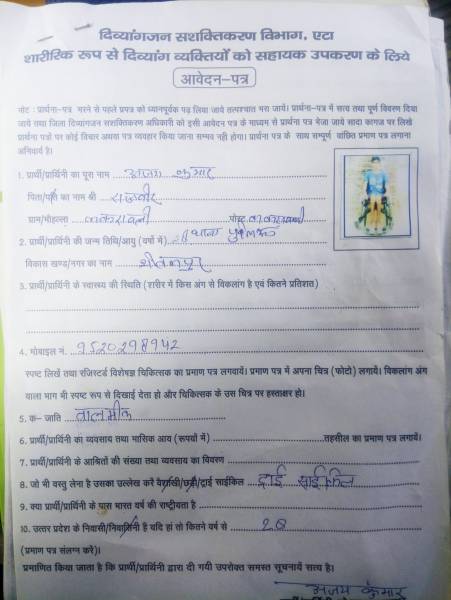 दिव्यांगजन सशक्तिकरण विभाग, एटा
शारीरिक रूप से दिव्यांग व्यक्तियों को सहायक उपकरण के लिये
आवेदन-पत्र
नोट : प्रार्थना-पत्र भरने से पहले प्रपत्र को ध्यानपूर्वक पढ़ लिया जाये तत्पश्चात भरा जाये। प्रार्थना-पत्र में सत्य तथा पूर्ण विवरण दिया
जाये तथा जिला दिव्यांगजन सशक्तिकरण अधिकारी को इसी आवेदन पत्र के माध्यम से प्रार्थना पत्र भेजा जाये सादा कागज पर लिखे
प्रार्थना पत्रों पर कोई विचार अथवा पत्र व्यवहार किया जाना सम्भव नहीं होगा। प्रार्थना पत्र के साथ सम्पूर्ण वांछित प्रमाण पत्र लगाना
अनिवार्य है।
1. प्रार्थी/प्रार्थिनी का पूरा नाम अजय कुमार
पिता/पति का नाम श्री राजवीर
ग्राम/मोहल्ला ककरावली पोस्ट ककरावली
2. प्रार्थी/प्रार्थिनी की जन्म तिथि/आयु (वर्षो में) 28 थाना
विकास खण्ड/नगर का नाम शीतलपुर
3. प्रार्थी/प्रार्थिनी के स्वास्थ्य की स्थिति (शरीर में किस अंग से विकलांग है एवं कितने प्रतिशत)
4. मोबाइल नं. 9520298942
स्पष्ट लिखें तथा रजिस्टर्ड विशेषज्ञ चिकित्सक का प्रमाण पत्र लगवायें। प्रमाण पत्र में अपना चित्र (फोटो) लगायें। विकलांग अंग
वाला भाग भी स्पष्ट रूप से दिखाई देता हो और चिकित्सक के उस चित्र पर हस्ताक्षर हो।
5. क- जाति वाल्मीक
6. प्रार्थी/प्रार्थिनी का व्यवसाय तथा मासिक आय (रूपयों में) तहसील का प्रमाण पत्र लगायें।
7. प्रार्थी/प्रार्थिनी के आश्रितों की संख्या तथा व्यवसाय का विवरण
8. जो भी वस्तु लेना है उसका उल्लेख करें बैशाखी/छड़ी/ट्राई साईकिल ट्राई साईकिल
9. क्या प्रार्थी/प्रार्थिनी के पास भारत वर्ष की राष्ट्रीयता है
10. उत्तर प्रदेश के निवासी/निवासिनी हैं यदि हां तो कितने वर्ष से 28
(प्रमाण पत्र संलग्न करे)।
प्रमाणित किया जाता है कि प्रार्थी/प्रार्थिनी द्वारा दी गयी उपरोक्त समस्त सूचनायें सत्य है।
अजय कुमार